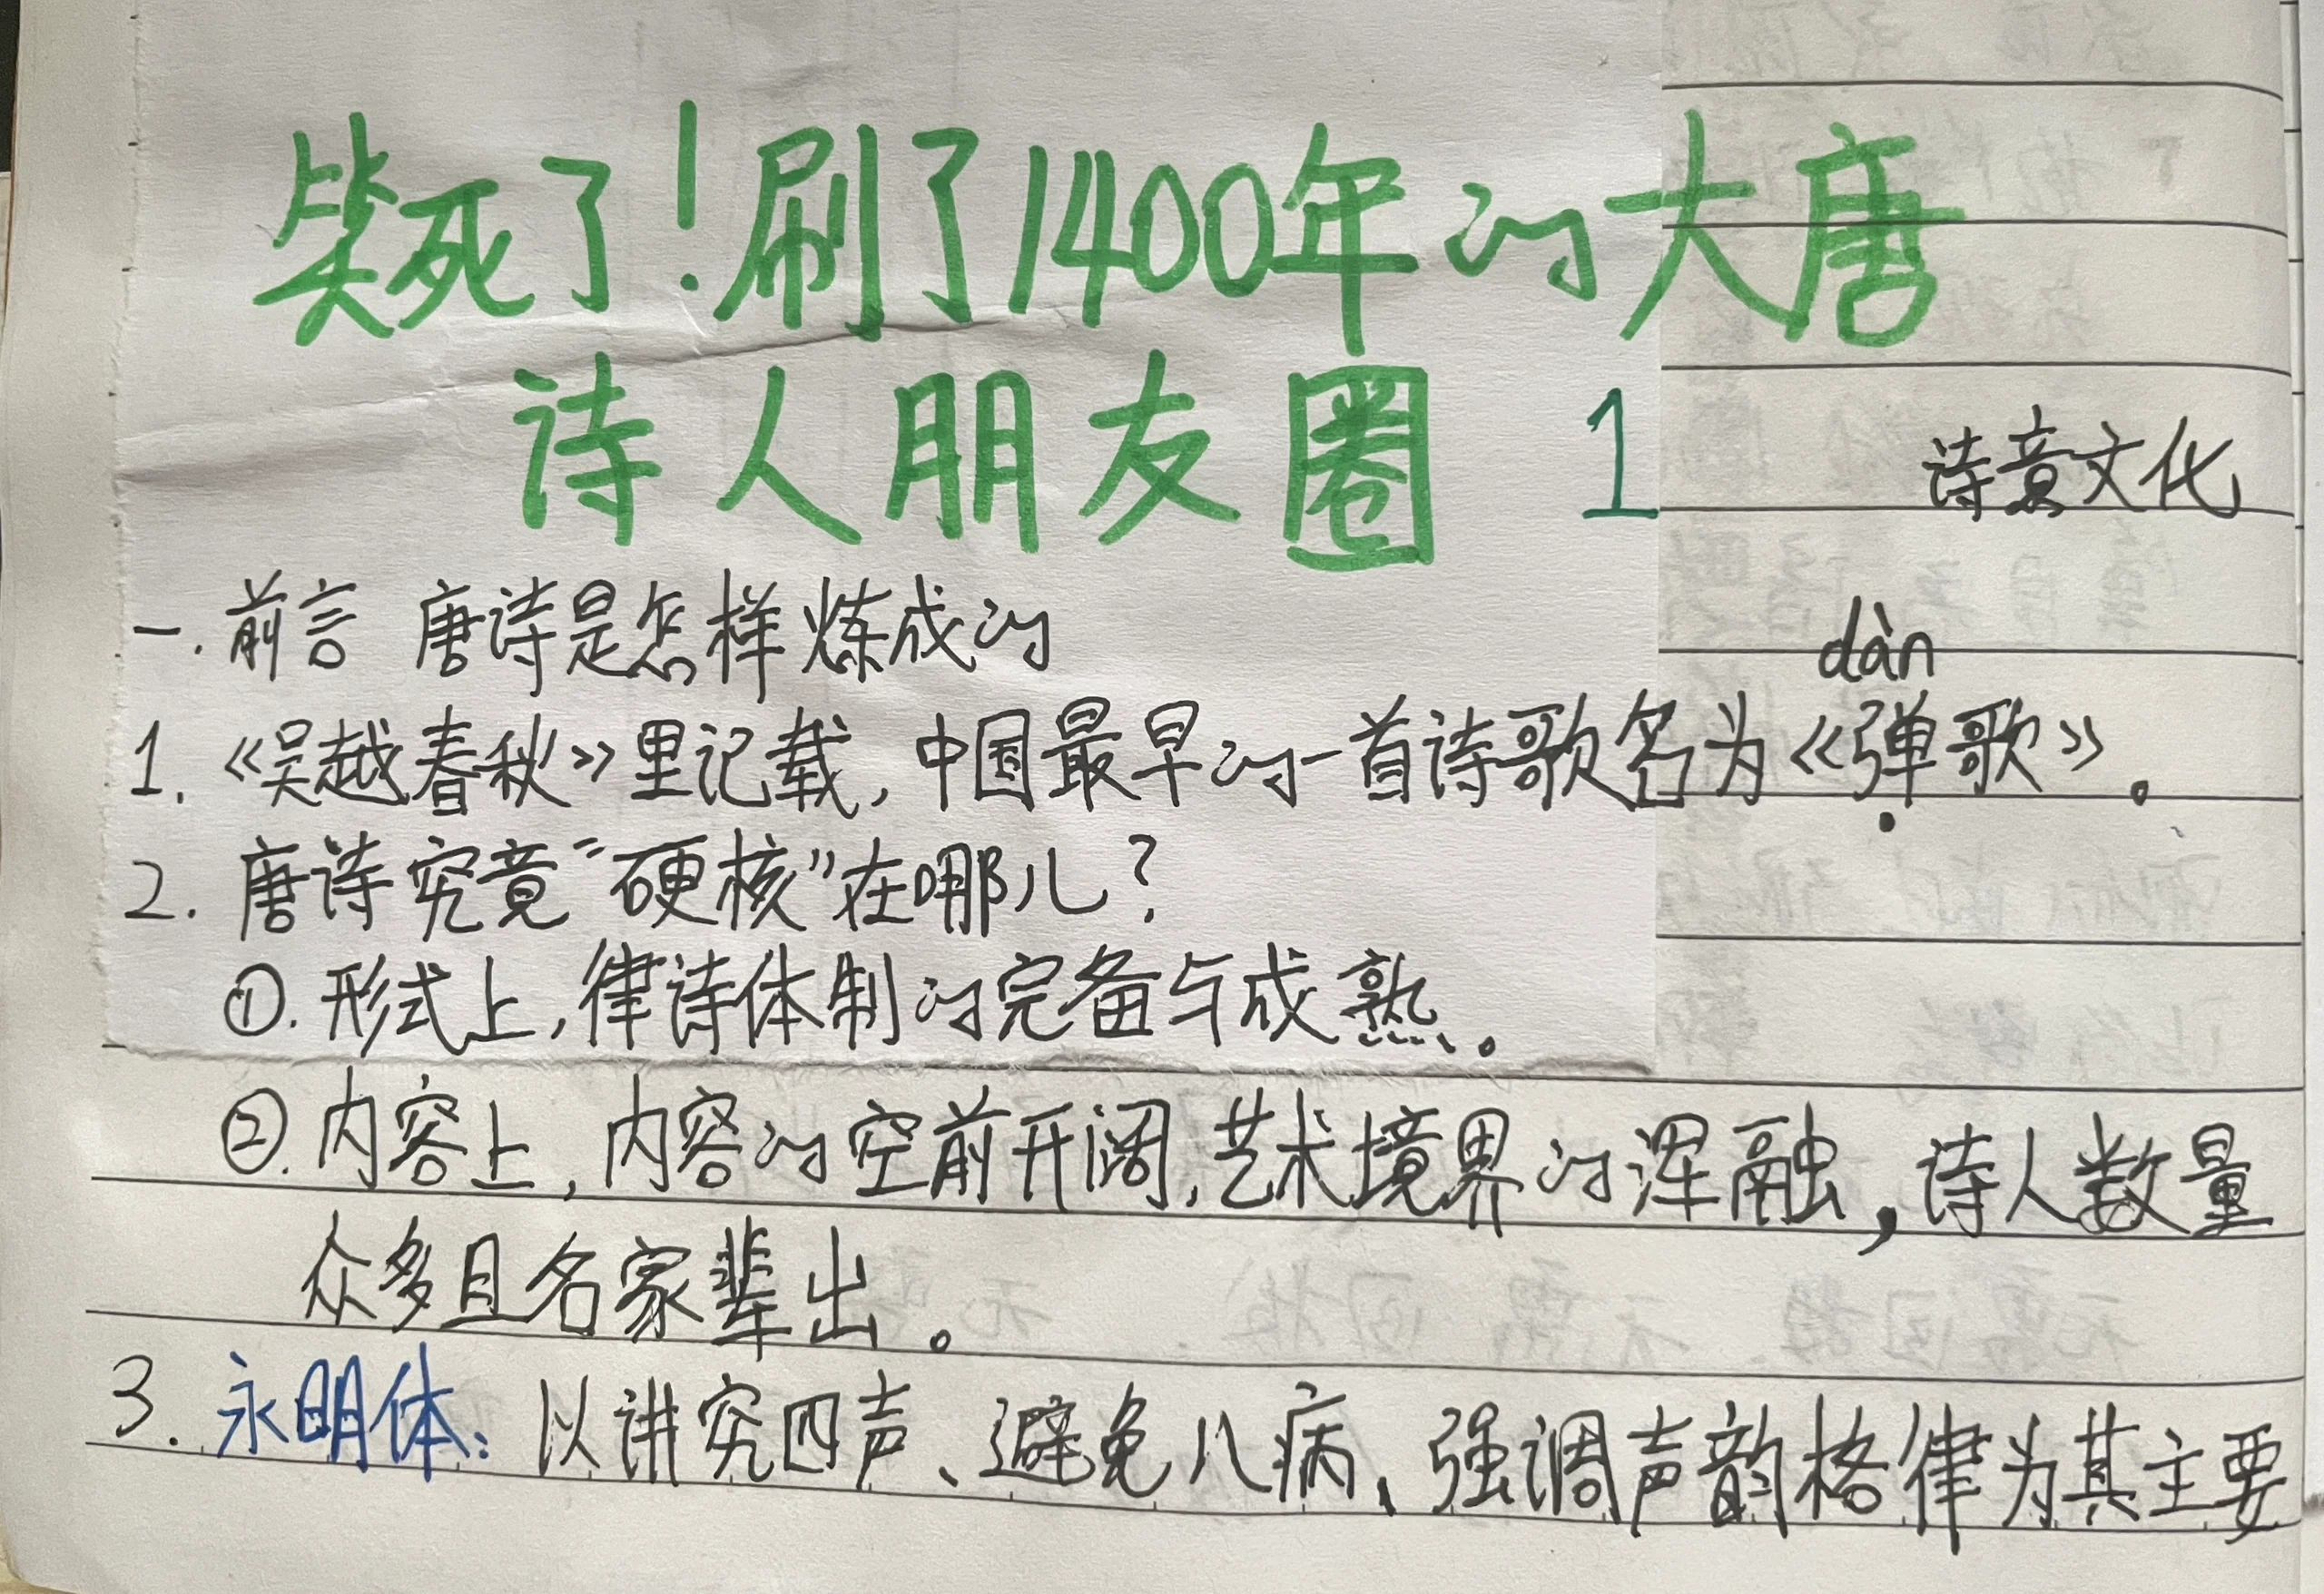 笑死了!刷了1400年的大唐
诗人朋友圈 1
诗意文化
一.前言 唐诗是怎样炼成的
dàn
1.《吴越春秋》里记载,中国最早的一首诗歌名为《弹歌》。
2.唐诗究竟“硬核”在哪儿?
①.形式上,律诗体制的完备与成熟。
②.内容上,内容的空前开阔,艺术境界的浑融,诗人数量
众多且名家辈出。
3.永明体:以讲究四声、避免八病、强调声韵格律为其主要